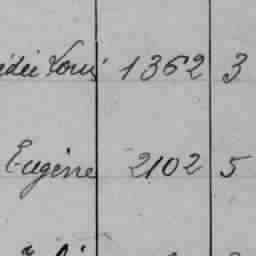 édée Louis 1362 3
Eugène 2102 5